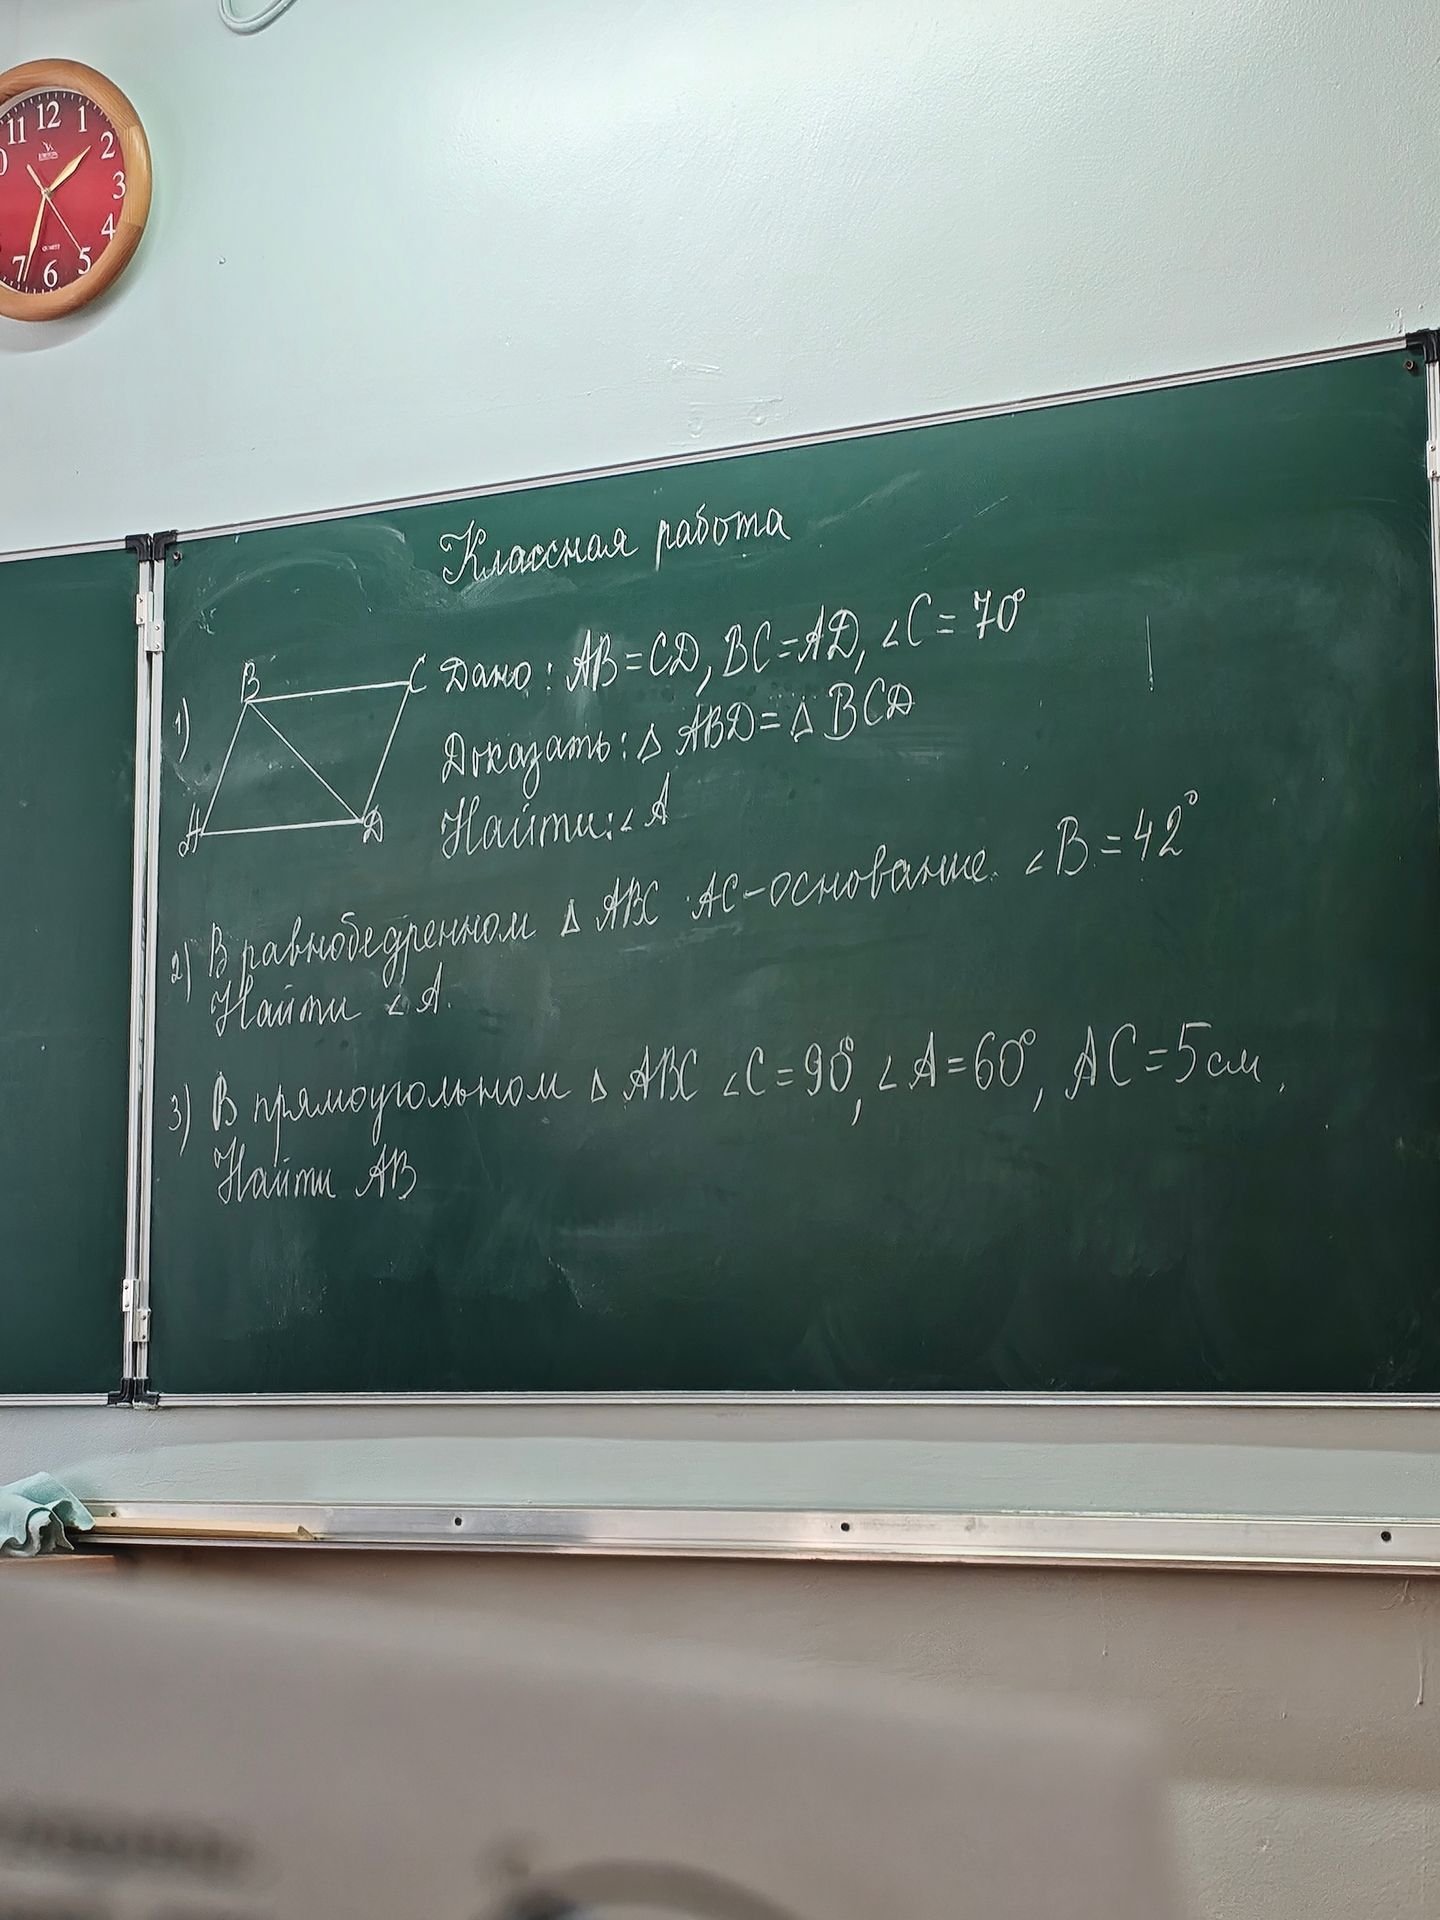 11 12 1
2
3
4
5
6
7
QUARTZ
Классная работа
1)
B
C
A
D
Дано: AB=CD, BC=AD, ∠C=70°
Доказать: △ ABD=△ BCD
Найти: ∠A
2) В равнобедренном △ ABC AC-основание. ∠B=42°
Найти ∠A.
3) В прямоугольном △ ABC ∠C=90°, ∠A=60°, AC=5см.
Найти AB